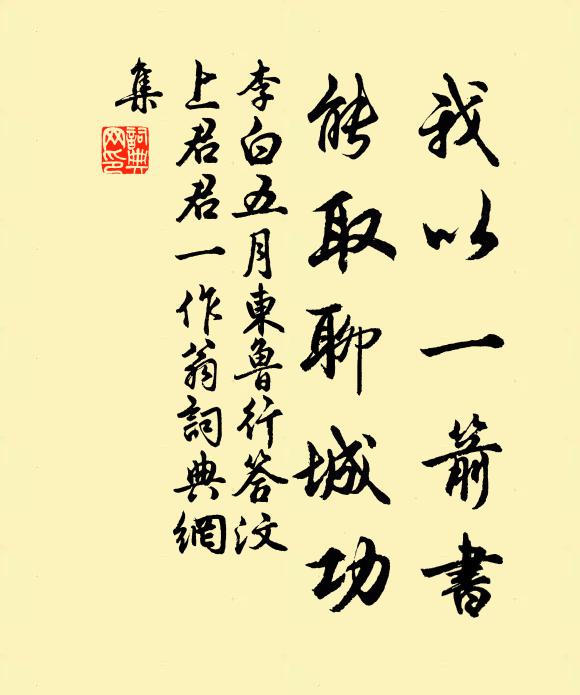 我以一箭書
能取聊城功
李白五月東魯行答汶
上君君一作翁詞典網
集
詞典網印